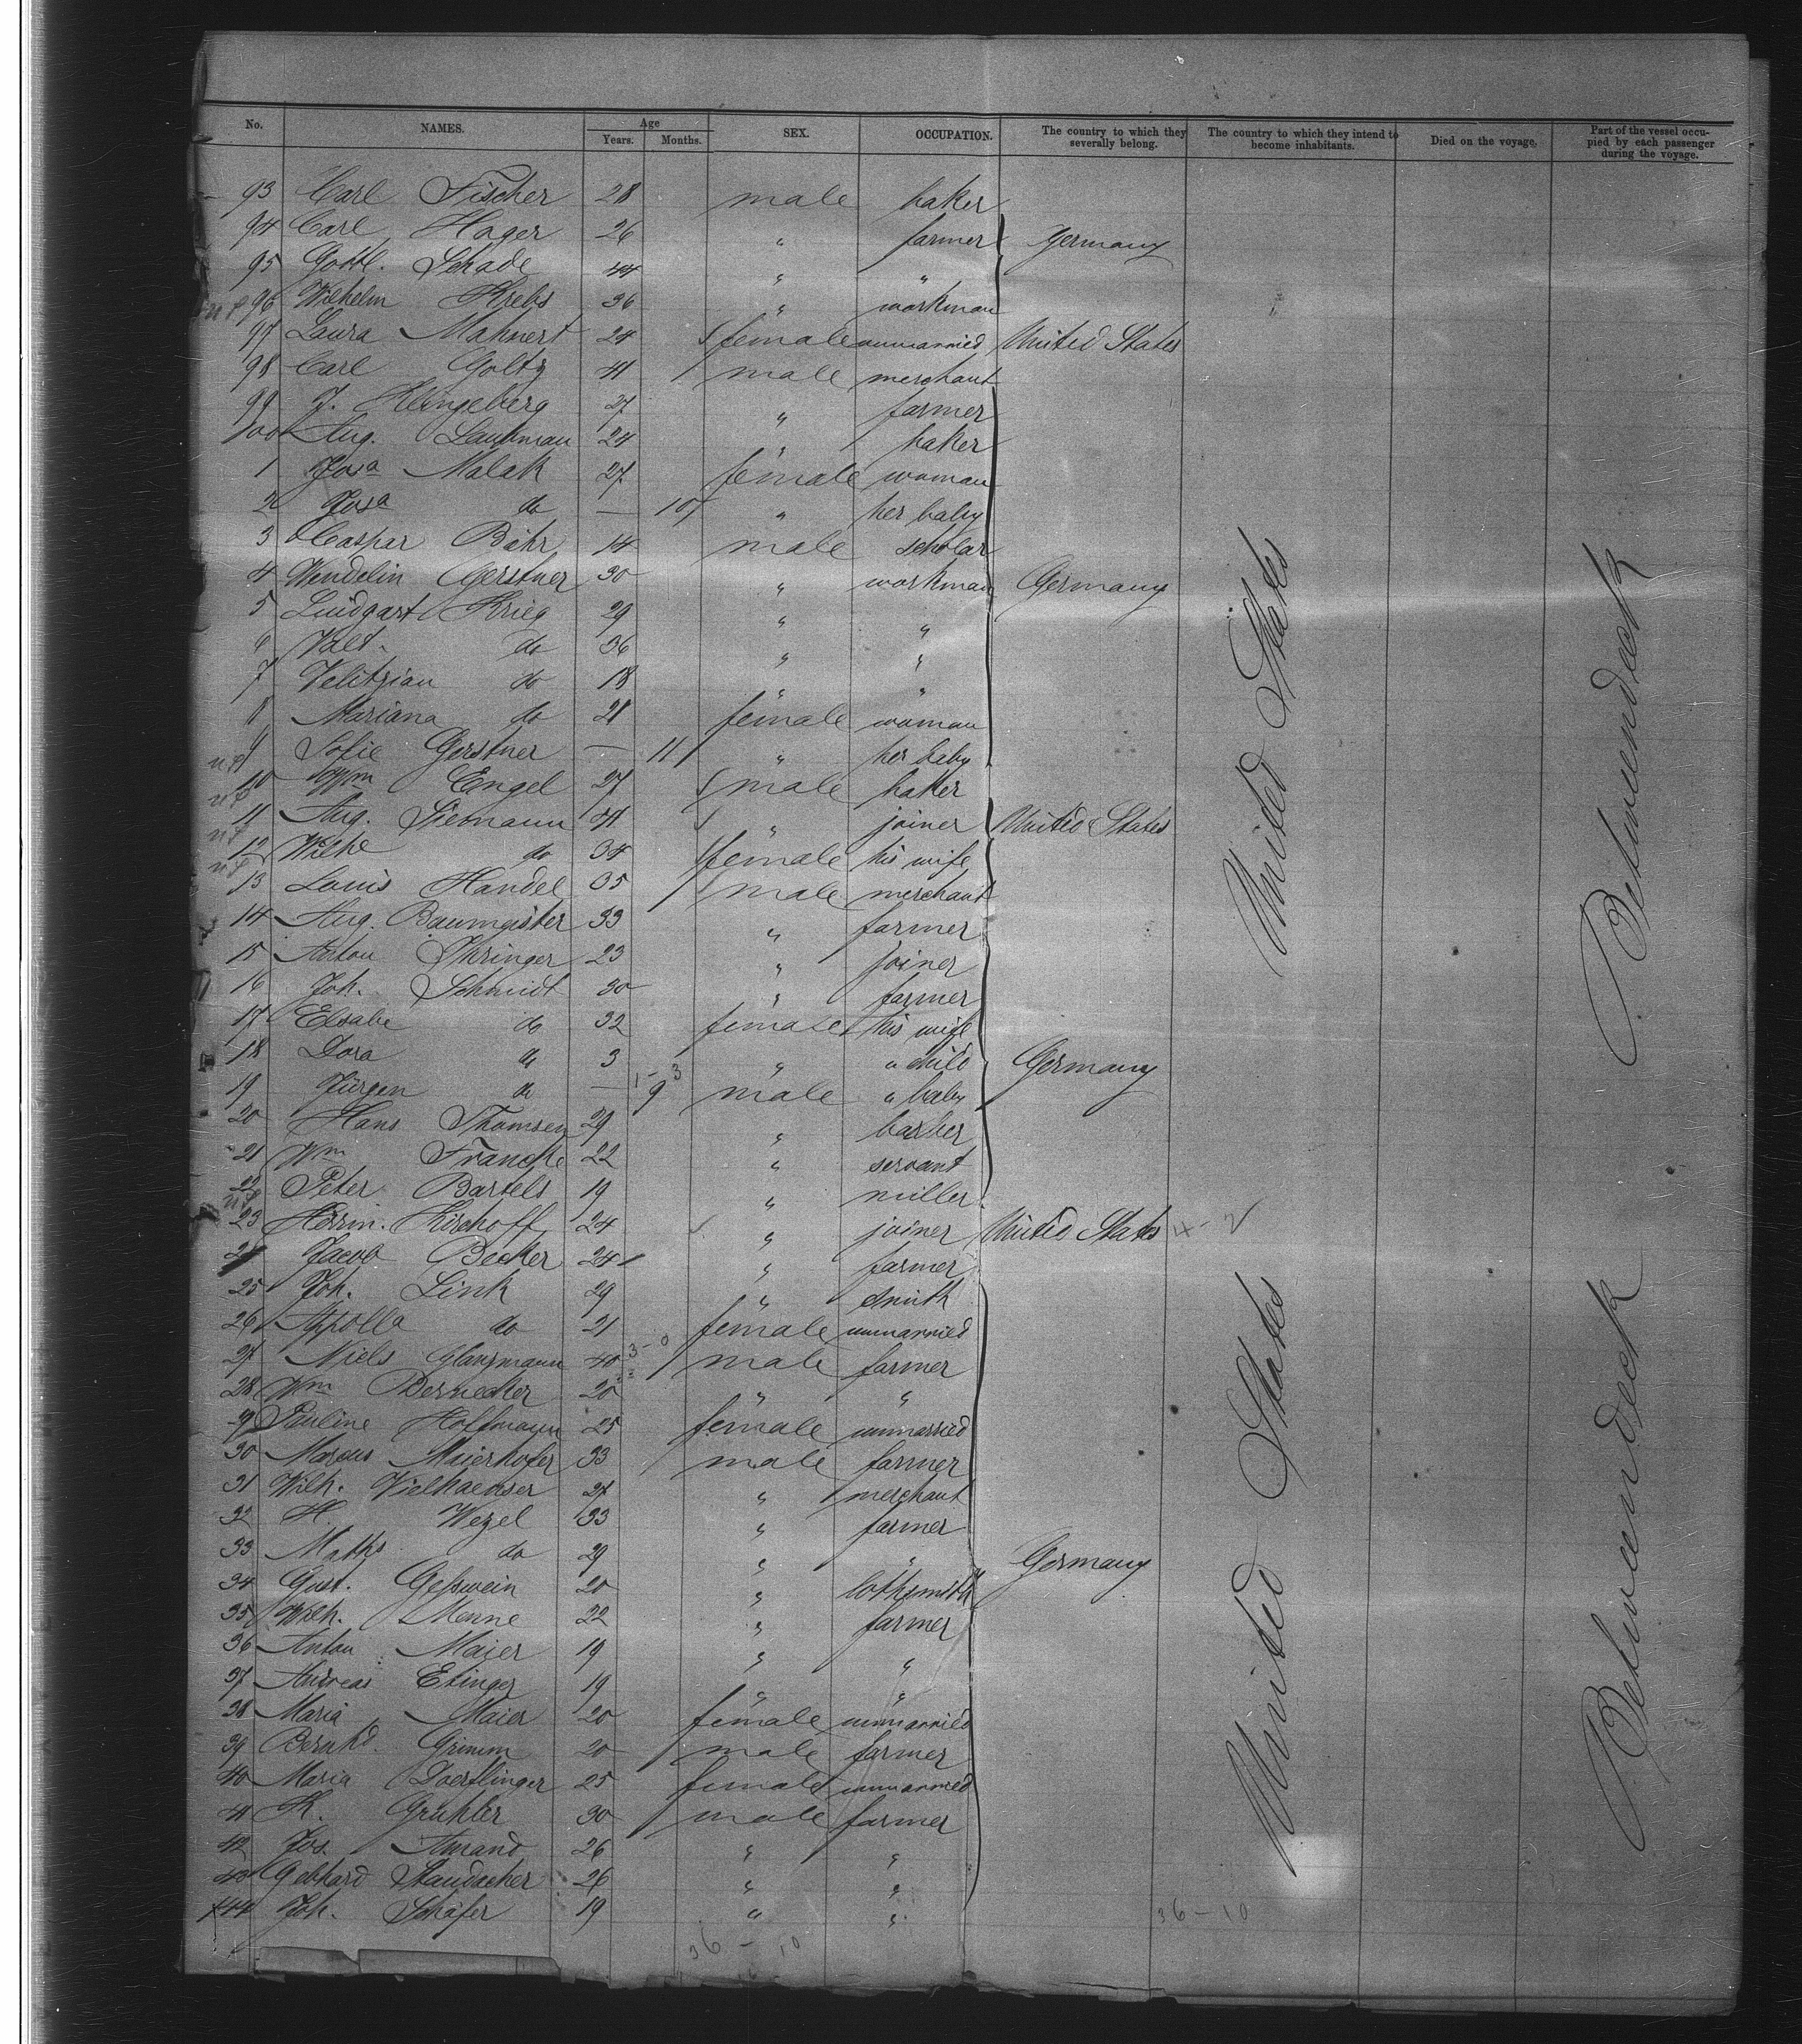 No. NAMES. Age Years. Months. SEX. OCCUPATION. The country to which they severally belong. The country to which they intend to become inhabitants. Died on the voyage. Part of the vessel occupied by each passenger during the voyage.
93 Carl Fischer 28 male baker
94 Carl Hager 26 " farmer Germany
95 Gottl. Schade 44 " "
96 Wilhelm Krebs 36 " workman
97 Laura Mahnert 24 female unmarried United States
98 Carl Goltz 41 male merchant
99 J. Klingeberg 27 " farmer
100 Aug. Laubman 24 " baker
1 Josa Malak 27 female woman
2 Josa do — 10 " her baby
3 Caspar Bähr 14 male scholar
4 Wendelin Gerstner 30 " workman Germany
5 Luidgart Krieg 29 " "
6 Valt. do 36 " "
7 Velitzian do 18 " "
8 Mariana do 21 female woman
9 Sofie Gerstner — 11 " her baby
10 Wm Engel 27 male baker
11 Aug. Siemann 41 " joiner United States
12 Wilhe do 34 female his wife
13 Louis Handel 35 male merchant
14 Aug. Baumeister 33 " farmer
15 Anton Ihringer 23 " joiner
16 Joh. Schmidt 30 " farmer
17 Elsabe do 32 female his wife
18 Dora do 3 " " child Germany
19 Jürgen do — 9 male " baby
20 Hans Thomsen 29 " barber
21 Wm Francke 22 " servant
22 Peter Bartels 19 " miller
23 Herm. Kirchoff 24 " joiner United States
24 Jacob Becker 24 " farmer
25 Joh. Link 29 " smith
26 Appolla do 21 female unmarried
27 Niels Glanzmann 40 male farmer
28 Wm Bernecker 20 " "
29 Pauline Hoffmann 25 female unmarried
30 Marcus Maierhofer 33 male farmer
31 Wilh. Vielhaenser 27 " merchant
32 H. Wezel 33 " farmer
33 Maths do 29 " " Germany
34 Gust. Geßwein 20 " lothsmith
35 Wilh. Menne 22 " farmer
36 Anton Maier 19 " "
37 Andreas Etinger 19 " "
38 Maria Maier 20 female unmarried
39 Bernhd. Grimm 20 male farmer
40 Maria Doerflinger 25 female unmarried
41 K. Gruhler 30 male farmer
42 Jos. Amand 26 " "
43 Gebhard Staudacher 26 " "
44 Joh. Schäfer 19 " "
36 - 10
36 - 10
United States
United States
Betweendeck
Betweendeck